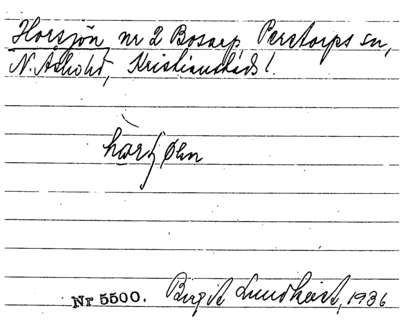 Horsjön nr 2 Bosarp Perstorps sn,
N. Åsbohd, Kristianstads l.
Nr 5500. Birgit Lundkvist, 1936